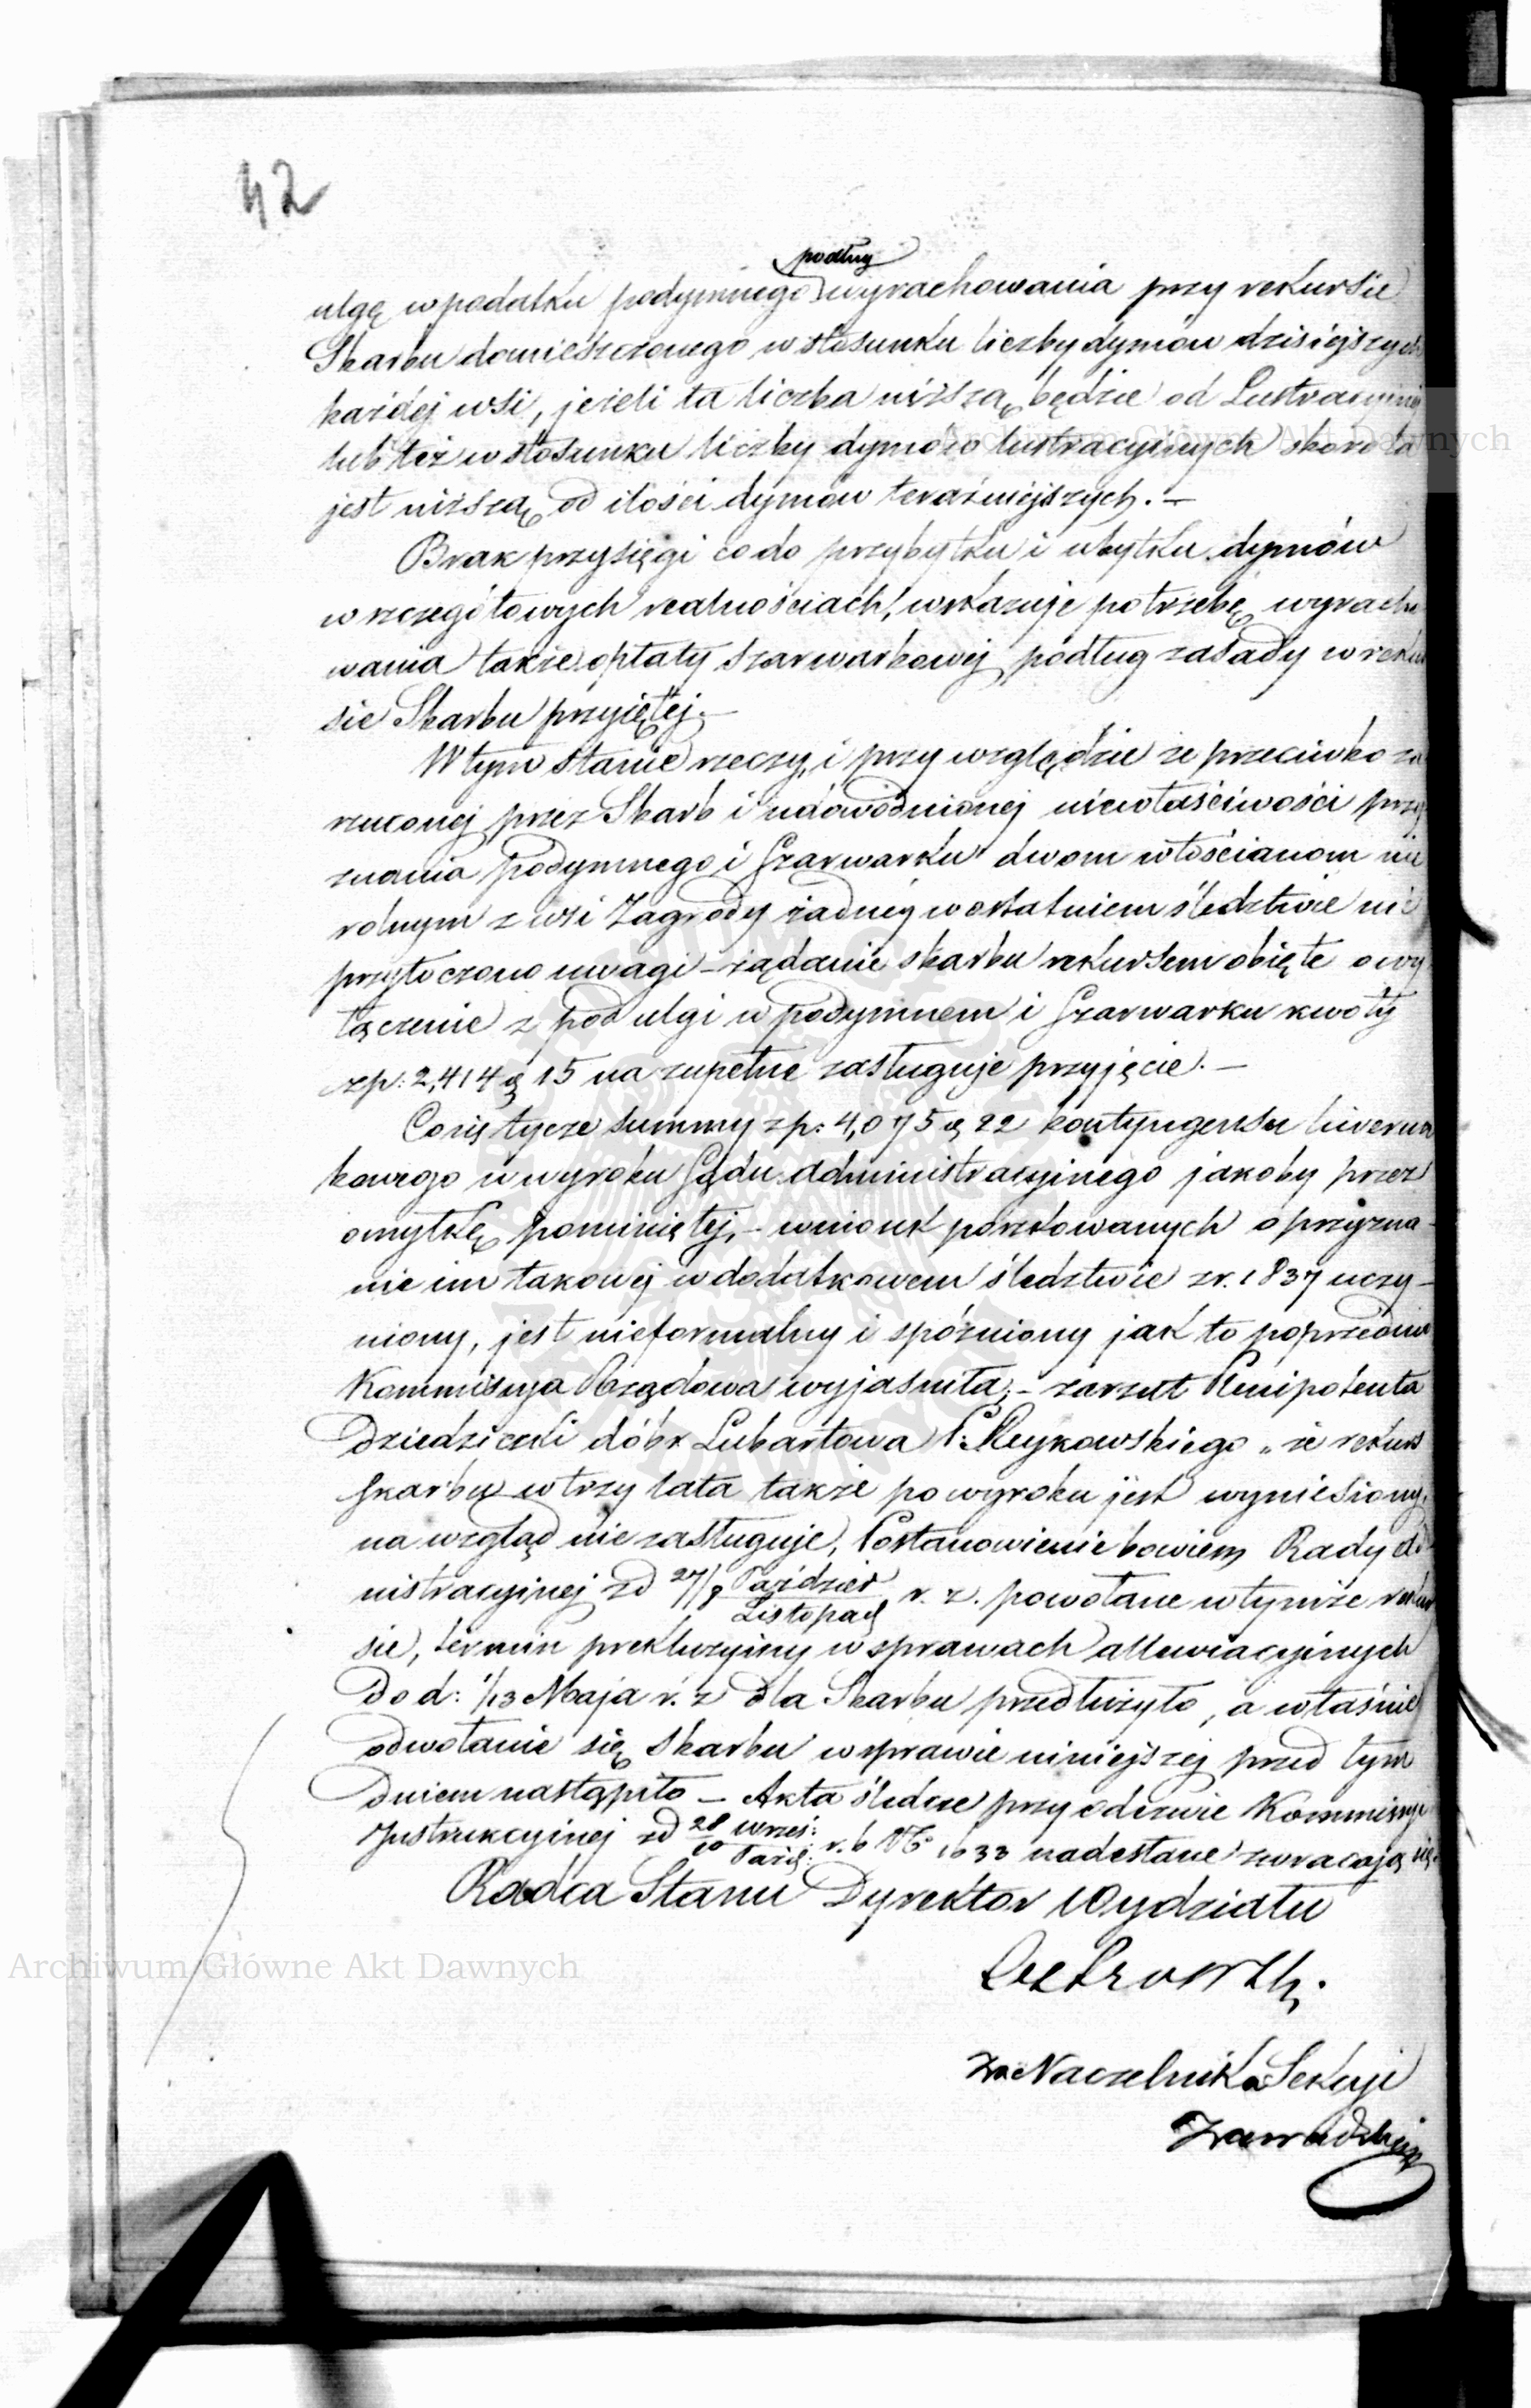 42
podług
ulgę w podatku podymnego wyrachowania przy rekursie
Skarbu domieszczonego w stosunku liczby dymów dzisiejszych
każdej wsi, jeżeli ta liczba niższą będzie od Lustracyjnéj
lub też w stosunku liczby dymów lustracyjnych skoro ta
jest niższą od ilości dymów teraźniejszych. –
Brak przysięgi co do przybytku i ubytku dymów
w szczegółowych realnościach, wskazuje potrzebę wyracho
wania także opłaty szarwarkowej podług zasady w rekur
sie Skarbu przyjętéj. –
W tym stanie rzeczy, i przy względzie że przeciwko za
rzuconej przez Skarb i udowodnionej niewłaściwości przy
znania podymnego i Szarwarku dwom włościanom nie
rolnym z wsi Zagrody żadnéj w ostatniem śledztwie nie
przytoczono uwagi – żądanie skarbu rekursem objęte o wy
łączenie z pod ulgi w podymnem i Szarwarku kwoty
zp: 2,414 g 15 na zupełne zasługuje przyjęcie. –
Co się tycze summy zp: 4,075 g 22 kontyngensu liwerun
kowego w wyroku Sądu Administracyjnego jakoby przez
omyłkę pominiętej, – wniosek poszkowanych o przyzna-
nie im takowej w dodatkowem śledztwie z r. 1837 uczy-
niony, jest nieformalny i spóźniony jak to poprzednio
Kommissya Rządowa wyjaśniła; – zarzut Plenipotenta
Dziedziczki dóbr Lubartowa P. Meykowskiego „że rekurs
Skarbu w trzy lata także po wyroku jest wyniesiony,
na wzgląd nie zasługuje, Postanowienie bowiem Rady Admi
nistracyjnej zd 27/8 Paździer/Listopad r. z. powołane w tymże rekur
sie, termin prekluzyiny w sprawach alleviacyjnych
do d: 1/13 Maja r. z dla Skarbu przedłużyło, a właśnie
odwołanie się skarbu w sprawie niniejszej przed tym
dniem nastąpiło – Akta śledcze przy odezwie Kommissyi
Instrukcyjnej zd 28 wrześ:/10 Paźd: r. b N° 1633 nadesłane zwracają się.
Radca Stanu Dyrektor Wydziału
za Naczelnika Sekcyi
Zawadzki
Archiwum Główne Akt Dawnych
Archiwum Główne Akt Dawnych
ARCHIWUM GŁÓWNE AKT DAWNYCH